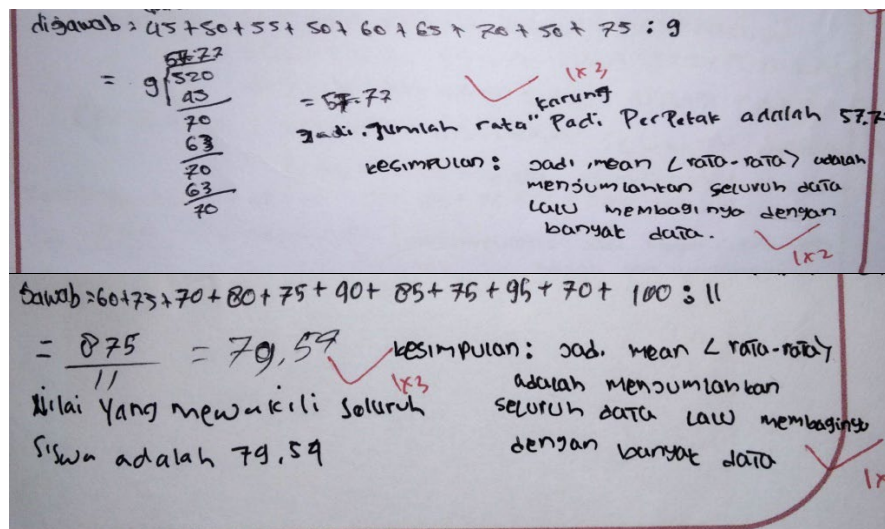 dijawab : 45 + 50 + 55 + 50 + 60 + 65 + 70 + 50 + 75 : 9
57.77
= 9 √520
45
70
63
70
63
70
= 57.77
1x3
karung
Jadi. Jumlah rata" Padi PerPetak adalah 57.7
kesimpulan : Jadi, mean < rata-rata > adalah
menjumlahkan seluruh data
Lalu membaginya dengan
banyak data.
1x2
Jawab : 60+75+70+80+75+90+ 85+75+95+70+ 100 : 11
= 875/11 = 79,54
1x3
Nilai Yang mewakili seluruh
siswa adalah 79,54
kesimpulan : Jadi, mean < rata-rata >
adalah menjumlahkan
seluruh data Lalu membaginya
dengan banyak data
1x